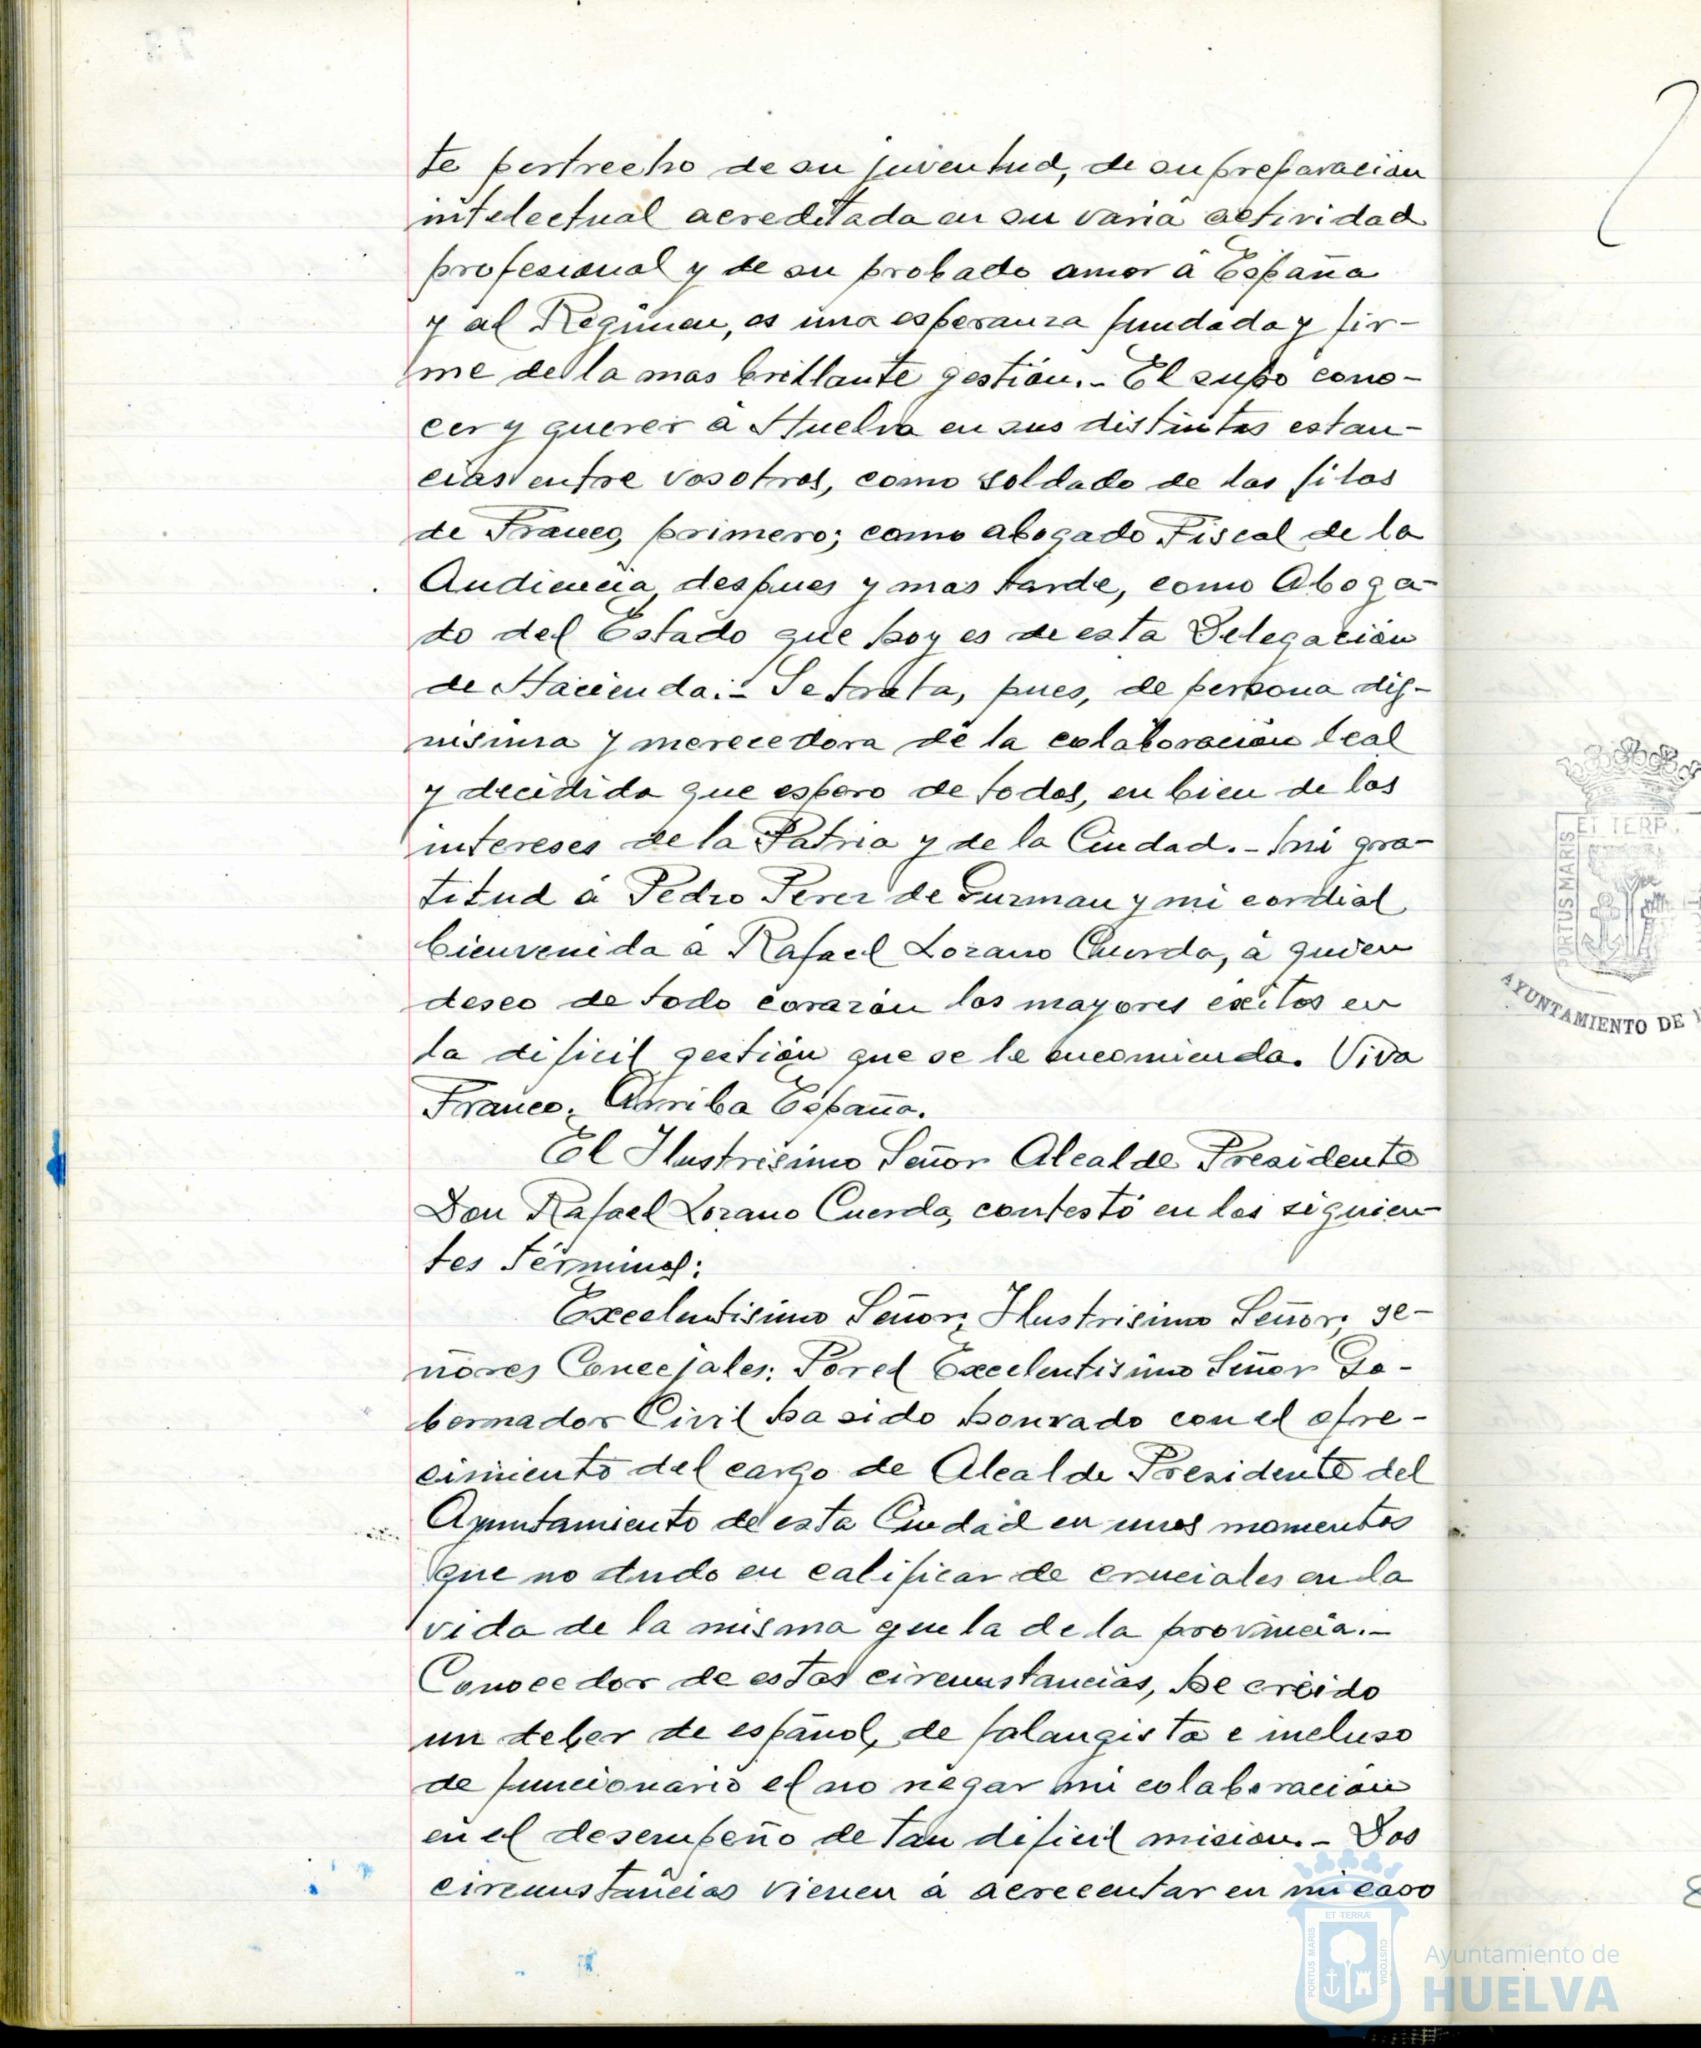 te pertrecho de su juventud, de su preparación
intelectual acreditada en su varia actividad
profesional y de su probado amor á España
y al Regimen, es una esperanza fundada y fir-
me de la mas brillante gestión.- El supo cono-
cer y querer á Huelva en sus distintas estan-
cias entre vosotros, como soldado de las filas
de Franco, primero; como abogado Fiscal de la
Audiencia, despues y mas tarde, como Aboga-
do del Estado que hoy es de esta Delegación
de Hacienda.- Se trata, pues, de persona dig-
nisima y merecedora de la colaboración leal
y decidida que espero de todos, en bien de los
intereses de la Patria y de la Ciudad.- Mi gra-
titud á Pedro Perez de Guzman y mi cordial
bienvenida á Rafael Lozano Cuerda, á quien
deseo de todo corazón los mayores éxitos en
la dificil gestión que se le encomienda. Viva
Franco. Arriba España.
El Ilustrisimo Señor Alcalde Presidente
Don Rafael Lozano Cuerda, contestó en los siguien-
tes términos:
Excelentisimo Señor; Ilustrisimo Señor; se-
ñores Concejales: Por el Excelentisimo Señor Go-
bernador Civil ha sido honrado con el ofre-
cimiento del cargo de Alcalde Presidente del
Ayuntamiento de esta Ciudad en unos momentos
que no dudo en calificar de cruciales en la
vida de la misma y en la de la provincia.-
Conocedor de estas circunstancias, he creido
un deber de español, de falangista e incluso
de funcionario el no negar mi colaboración
en el desempeño de tan dificil mision.- Dos
circunstancias vienen á acrecentar en mi caso
ET TERR
PORTUS MARIS
AYUNTAMIENTO DE
ET TERRÆ
PORTUS MARIS
CUSTODIA
Ayuntamiento de
HUELVA